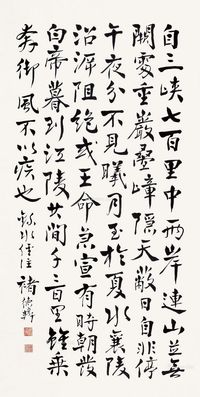 自三峽七百里中兩岸連山並無
闕處重巖疊嶂隱天蔽日自非停
午夜分不見曦月至於夏水襄陵
沿泝阻絕或王命急宣有時朝發
白帝暮到江陵其間千二百里雖乘
奔御風不以疾也 水經注 褚德彝